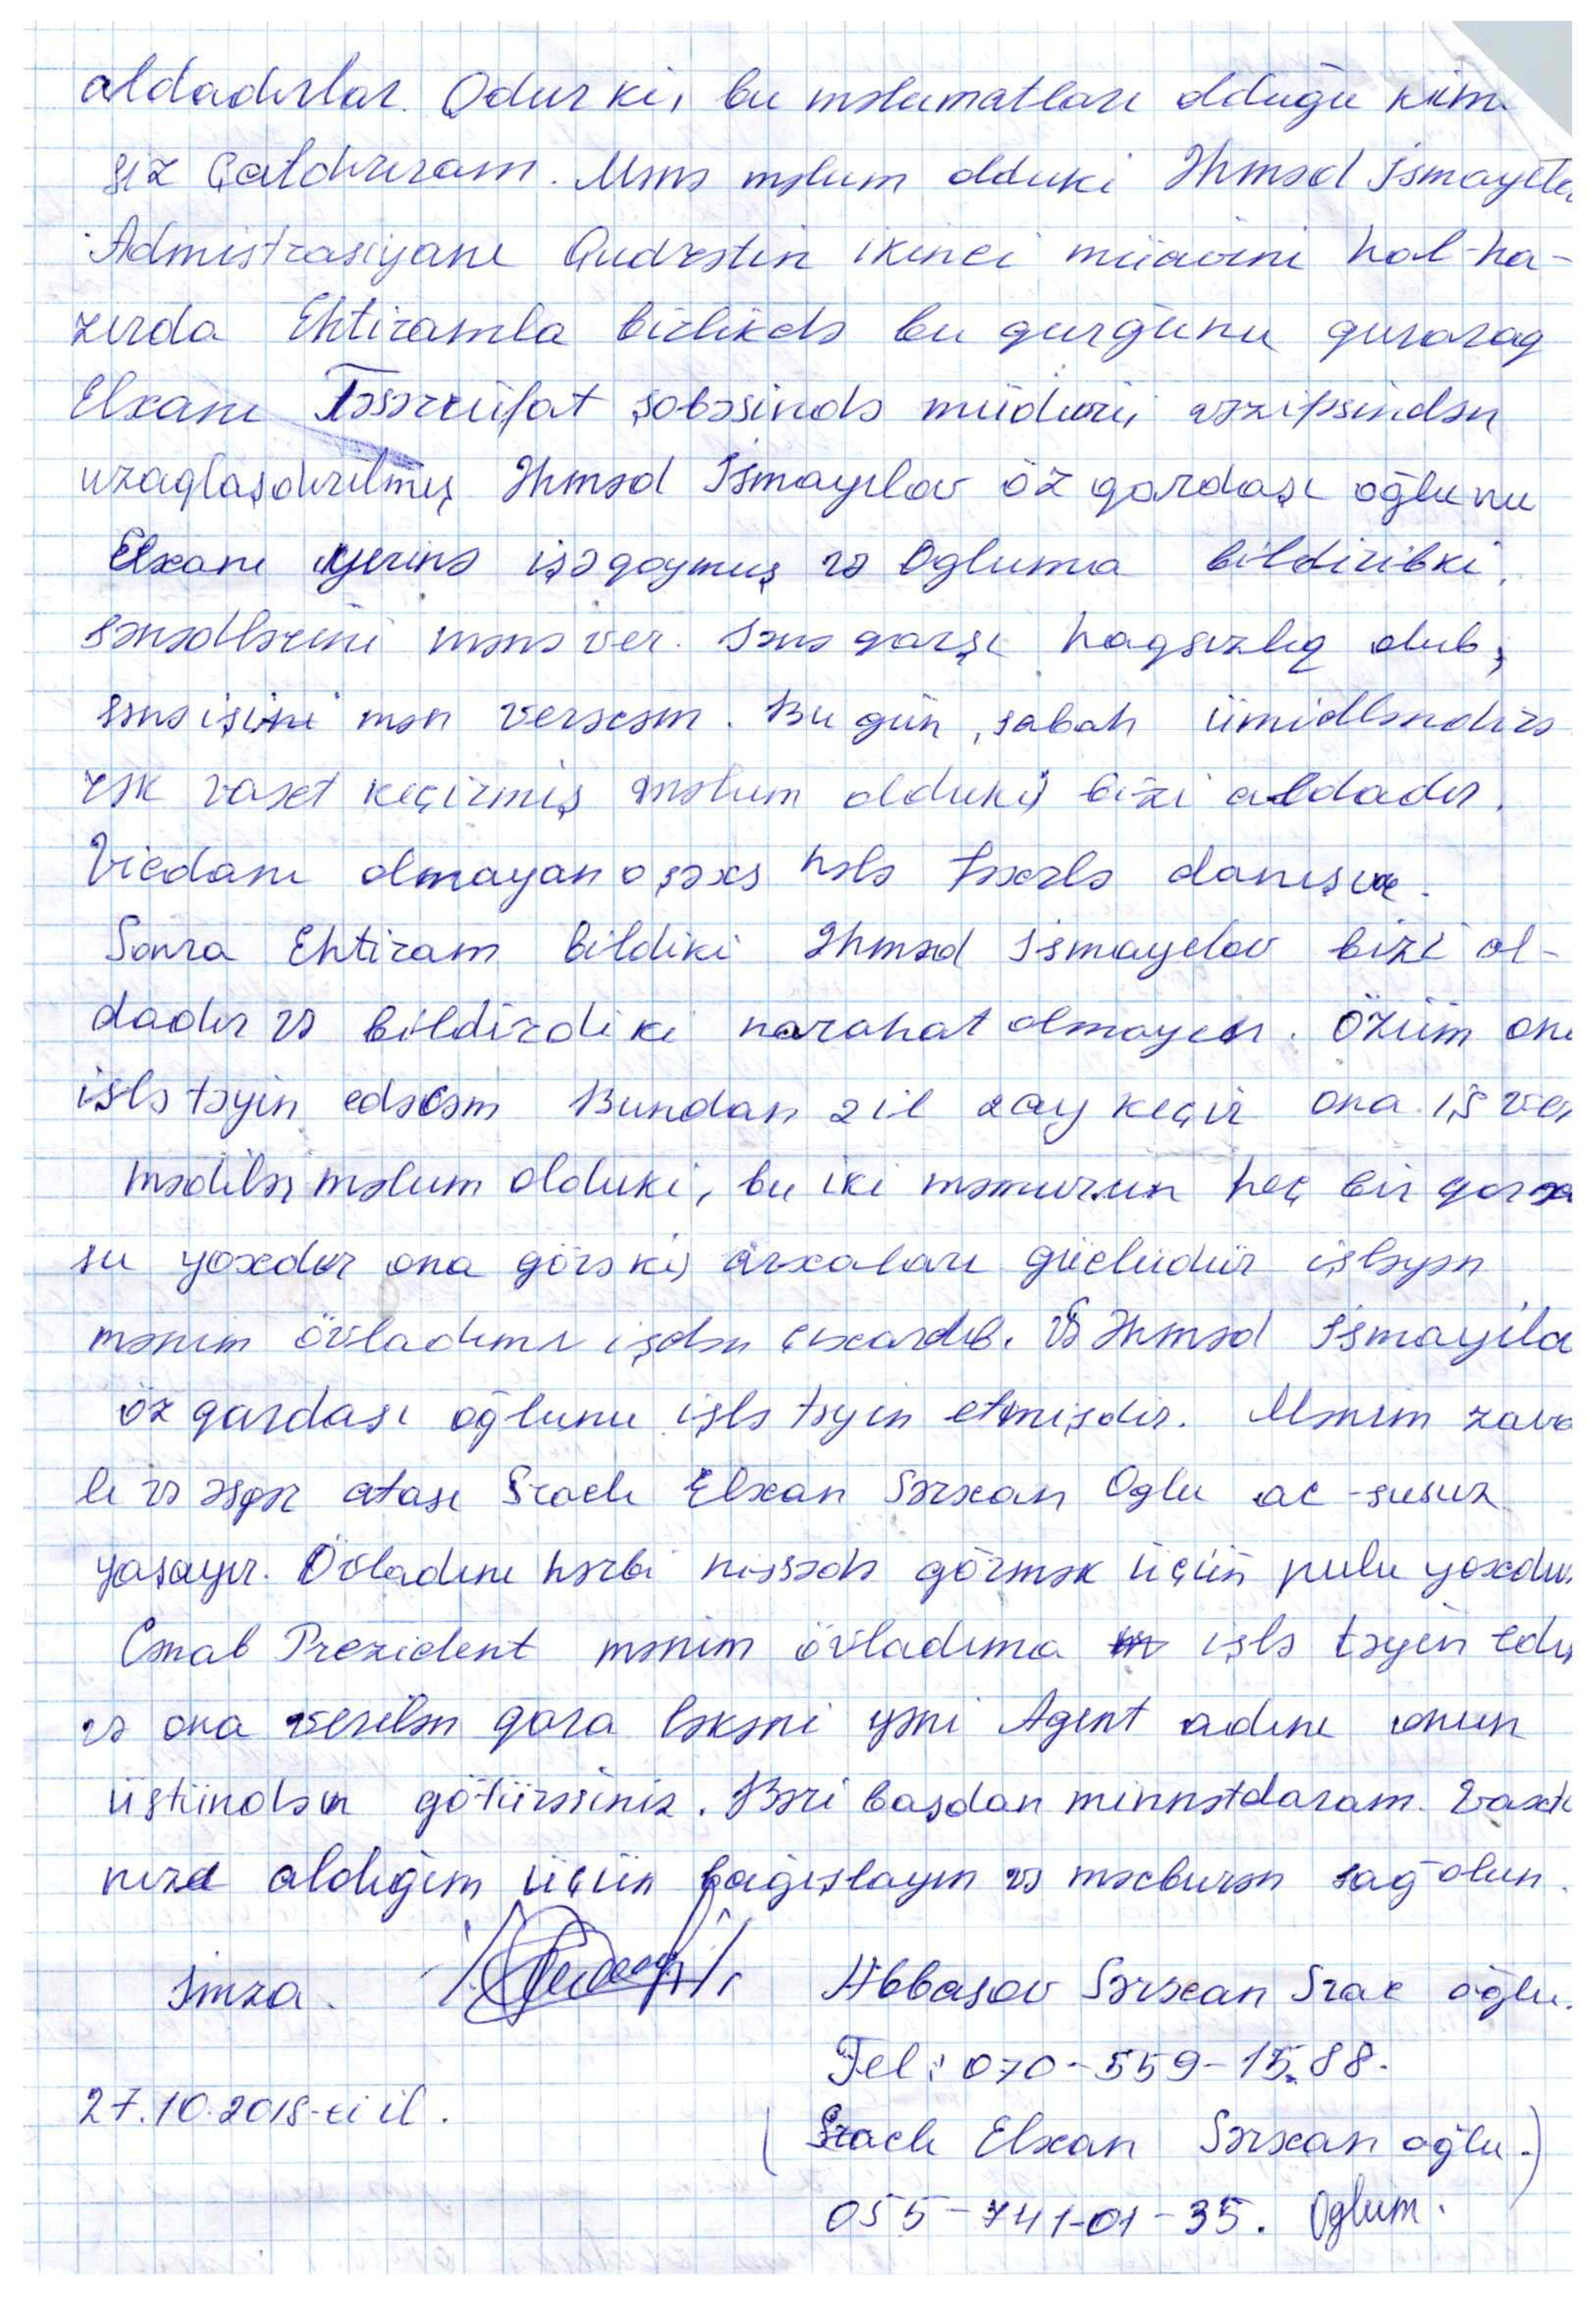 aldadırlar. Odur ki, bu məlumatları olduğu kimi
siz çatdırıram. Mənə məlum olduki Əhməd İsmayılo
Admistrasiyanı Qudrətin ikinci müavini hal-ha-
zırda Ehtiramla birlikdə bu qurğunu quraraq
Elxanı Təsərrüfat şöbəsində müdürü, vəzifəsindən
uzaqlaşdırılmış Əhməd İsmayılov öz qardaşı oğlunu
Elxanı yerinə işə qoymuş və Ogluma bildiribki,
sənədlərini mənə ver. Sənə qarşı haqsızlıq olub,
sənə işini mən verəcəm. Bu gün, sabah ümidləndirə
rək vaxt keçirmiş məlum olduki, bizi aldadır.
Vicdanı olmayan o şəxs hələ fəxrlə danışır.
Sonra Ehtiram bildiki Əhməd İsmayılov bizi al-
dadır və bildirdi ki narahat olmayın. Özüm onu
işlə təyin edəcəm Bundan 2 il 2 ay keçir ona iş ver
mədilər, məlum olduki, bu iki məmurun heç bir qorxu
su yoxdur ona görə ki, arxaları güclüdür işləyən
mənim övladımı işdən çıxardıb. Və Əhməd İsmayılo
öz qardaşı oğlunu işlə təyin etmişdir. Mənim zava
lı və əsgər atası İraclı Elxan Sərxan Oglu ac-susuz
yaşayır. Övladını hərbi hissədə görmək üçün pulu yoxdur.
Cənab Prezident mənim övladıma işlə təyin edin
və ona verilən qara ləkəni yəni Agent adını onun
üstündən götürəsiniz. Bəri başdan minnətdaram. Vaxtı
nızı aldığım üçün bağışlayın və məcburən sağ olun.
İmza. Abbasov Sərxan İrac oğlu.
Tel: 070-559-15.88.
27.10.2018-ci il.
(İraclı Elxan Sərxan oğlu.)
055-741-01-35. Oglum.